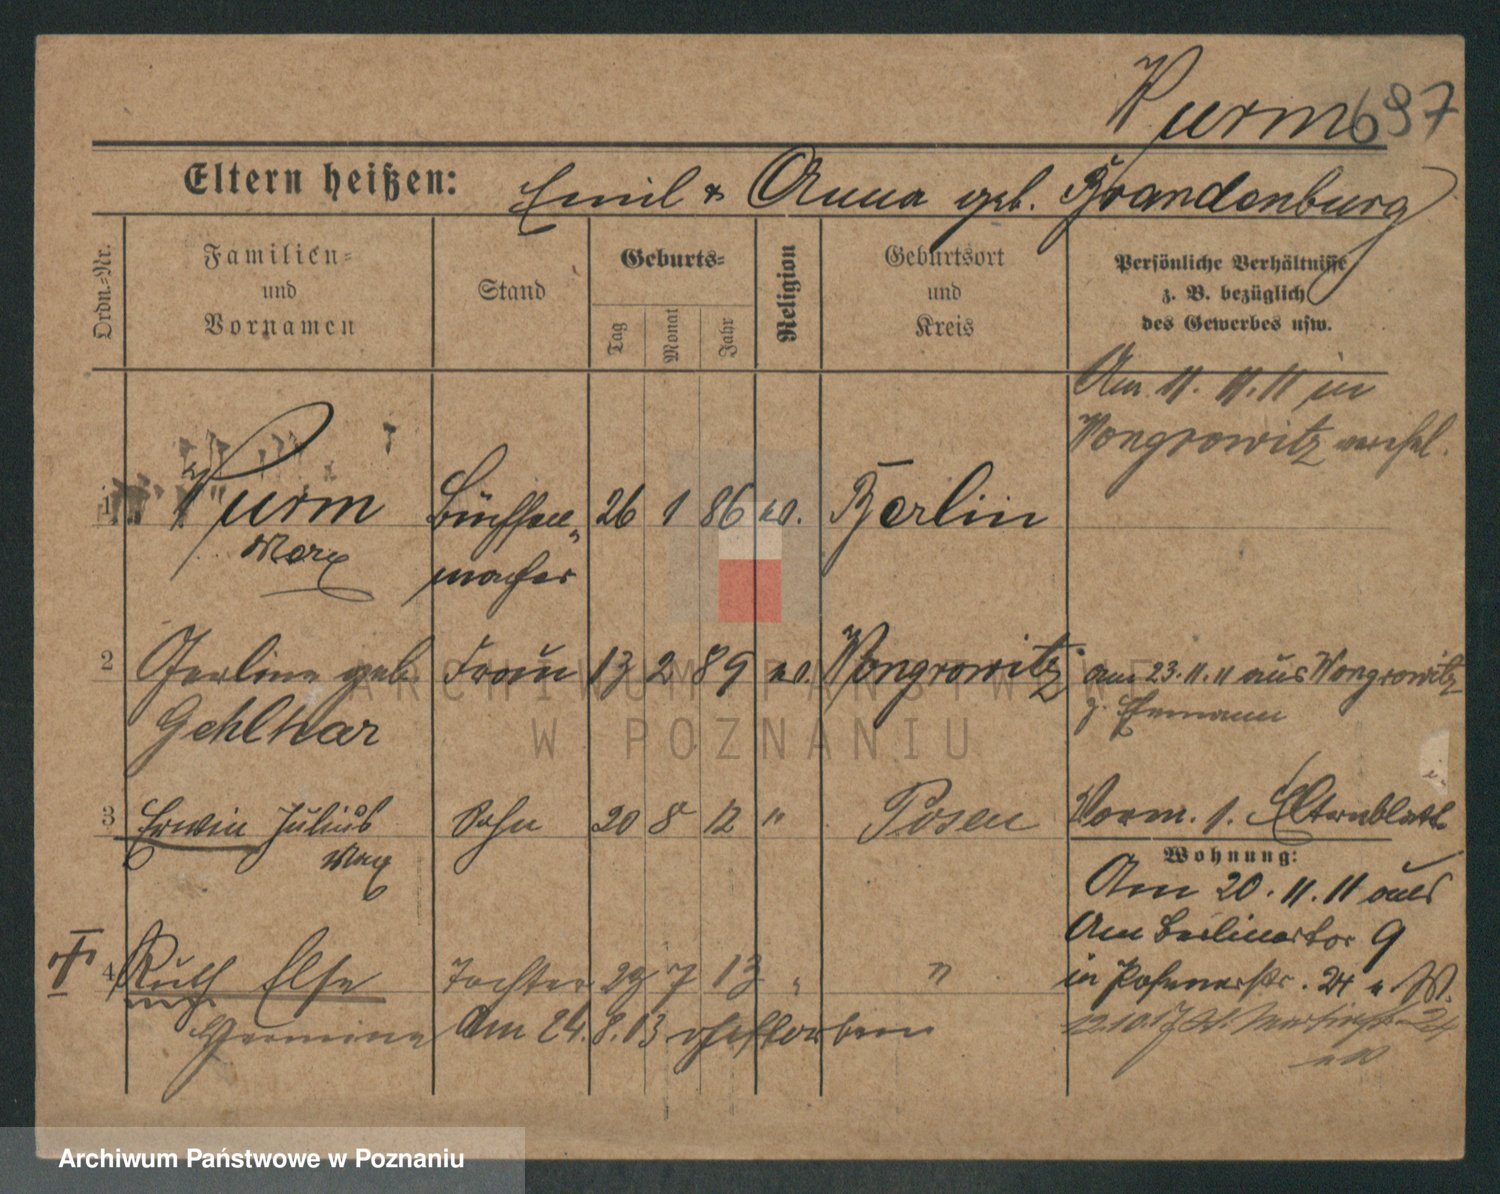 Wurm 697
Eltern heißen: Emil & Anna geb. Brandenburg
Ordn.=Nr.
Familien=
und
Vornamen
Stand
Geburts=
Tag
Monat
Jahr
Religion
Geburtsort
und
Kreis
Persönliche Verhältnisse
z. B. bezüglich
des Gewerbes usw.
Am 11. 11. 11 in
Wongrowitz verehel.
1 Wurm Büchsen- 26 1 86 ev. Berlin
Max macher
2 geb. Frau 13 2 89 ev. Wongrowitz am 23.11.11 aus Wongrowitz
Gehlhar z. Ehemann
3 Erwin Julius Sohn 20 8 12 " Posen Vorm. 1. Elternblatt
Max
Wohnung:
Am 20. 11. 11 aus
Am Berlinertor 9
in Posenerstr. 24 W.
4 Ruth Else Tochter 29 7 13 " "
Hermine Am 24. 8. 13 gestorben
12.10.17 St. Martinstr. 24
ARCHIWUM PAŃSTWOWE
W POZNANIU
Archiwum Państwowe w Poznaniu